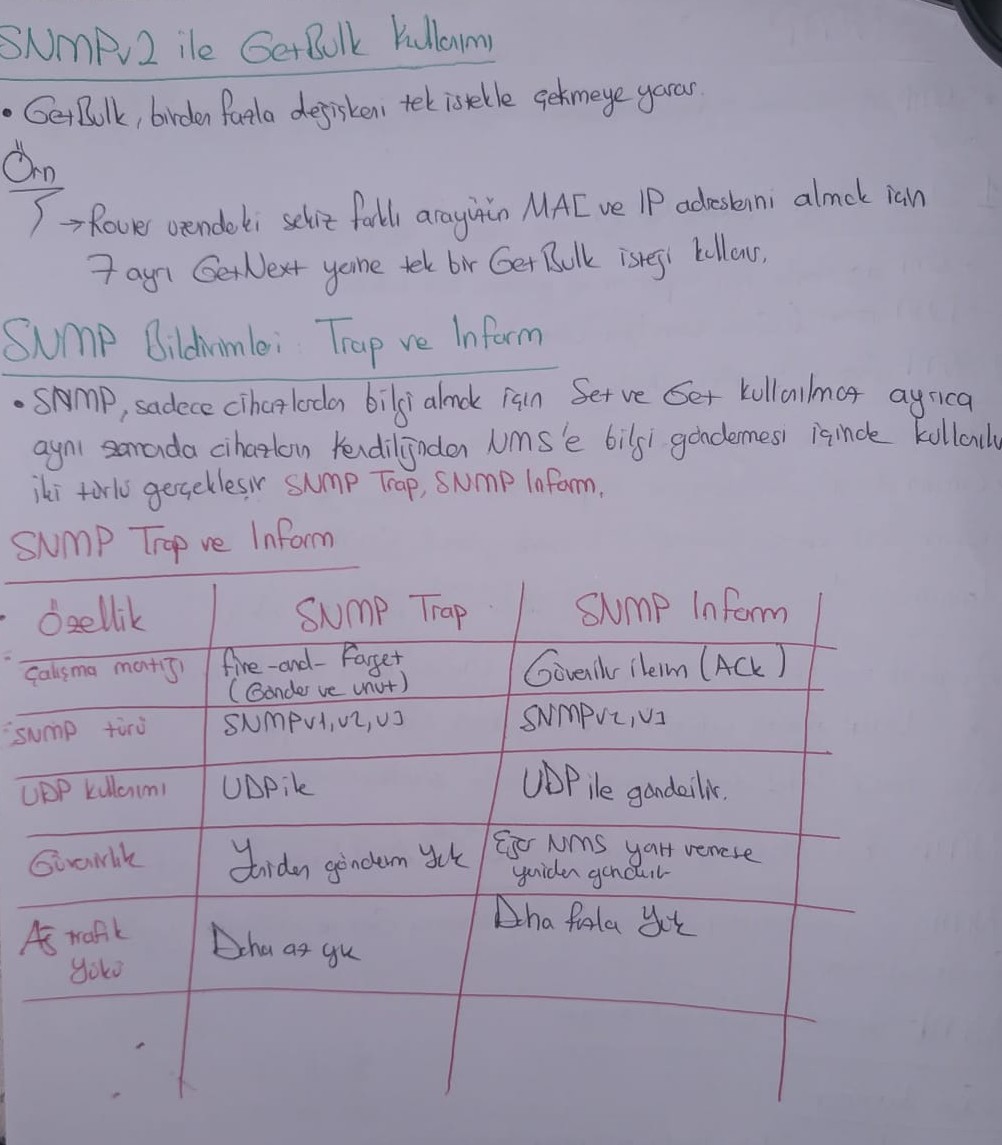 SNMPv2 ile GetBulk kullanımı
• GetBulk, birden fazla değişkeni tek istekle çekmeye yarar.
Örn
→ Router üzerideki sekiz farklı arayüzün MAC ve IP adreslerini almak için
7 ayrı GetNext yerine tek bir GetBulk isteği kullanır.
SNMP Bildirimleri Trap ve Inform
• SNMP, sadece cihazlardan bilgi almak için Set ve Get kullanılmaz ayrıca
aynı zamanda cihazların kendiliğinden NMS'e bilgi göndermesi içinde kullanılır
iki türlü gerçekleşir SNMP Trap, SNMP Inform.
SNMP Trap ve Inform
Özellik SNMP Trap SNMP Inform
Çalışma mantığı Fire-and-Farget Güvenilir iletim (ACK)
(Gönder ve unut)
SNMP türü SNMPv1, v2, v3 SNMPv2, v3
UDP kullanımı UDP ile UDP ile gönderilir.
Güvenirlik Yeniden gönderim Yok Eğer NMS yanıt vermese
yeniden gönderilir
Ağ trafik Daha az yük Daha fazla Yük
Yükü